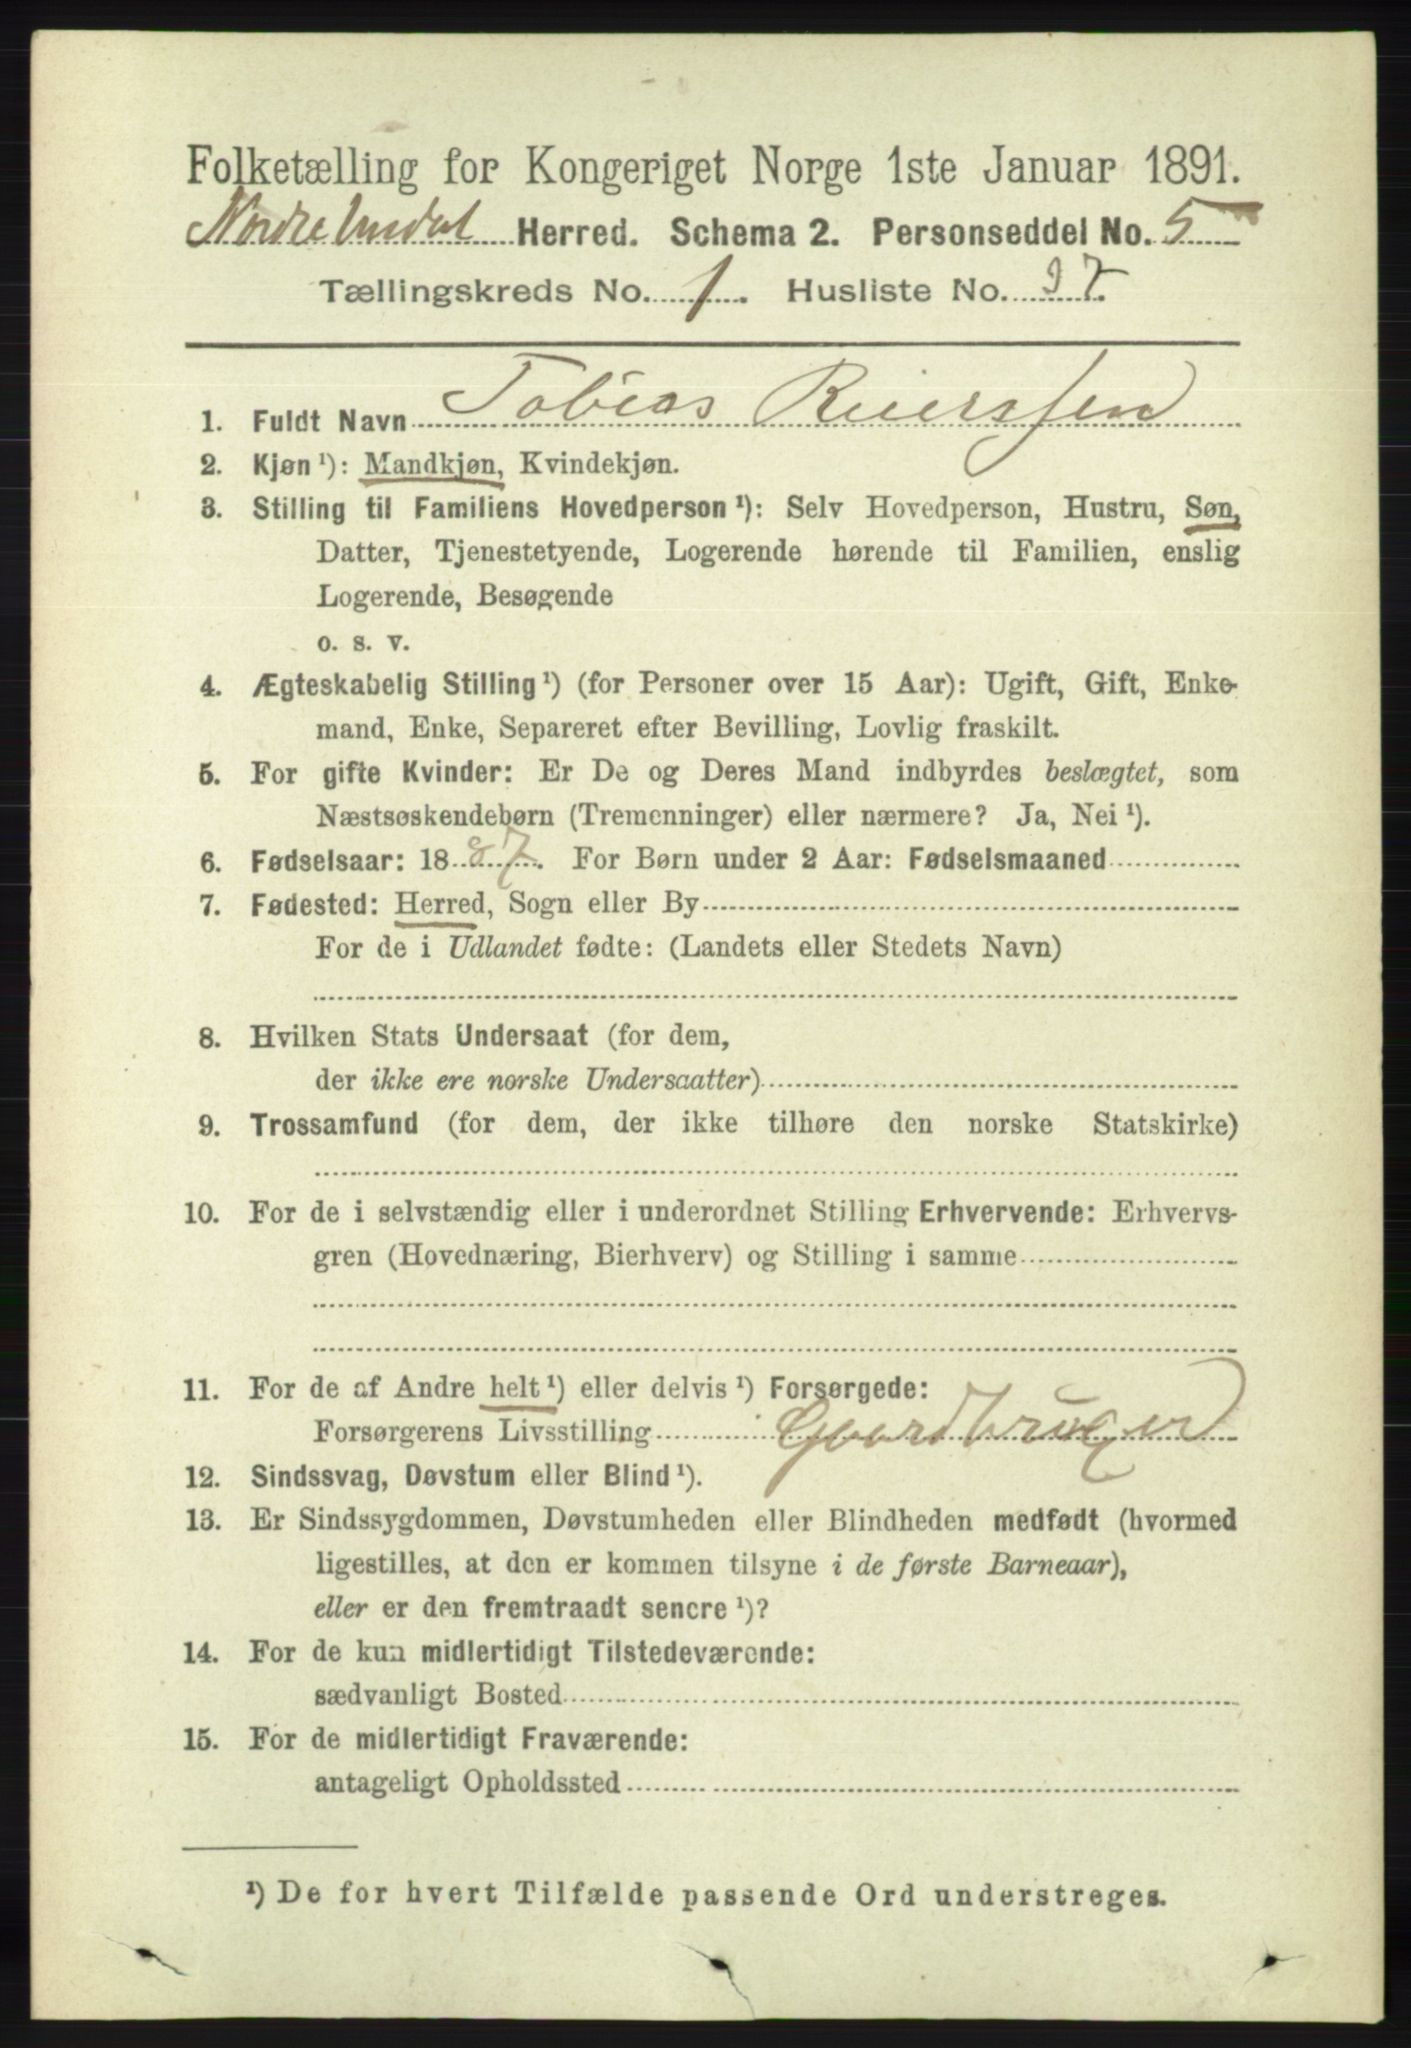 Folketælling for Kongeriget Norge 1ste Januar 1891.
Nordre Undal Herred. Schema 2. Personseddel No. 5
Tællingskreds No. 1. Husliste No. 37.
1. Fuldt Navn Tobias Reierssen
2. Kjøn¹): Mandkjøn, Kvindekjøn.
3. Stilling til Familiens Hovedperson¹): Selv Hovedperson, Hustru, Søn,
Datter, Tjenestetyende, Logerende hørende til Familien, enslig
Logerende, Besøgende
o. s. v.
4. Ægteskabelig Stilling¹) (for Personer over 15 Aar): Ugift, Gift, Enke-
mand, Enke, Separeret efter Bevilling, Lovlig fraskilt.
5. For gifte Kvinder: Er De og Deres Mand indbyrdes beslægtet, som
Næstsøskendebørn (Tremenninger) eller nærmere? Ja, Nei¹).
6. Fødselsaar: 1887. For Børn under 2 Aar: Fødselsmaaned
7. Fødested: Herred, Sogn eller By
For de i Udlandet fødte: (Landets eller Stedets Navn)
8. Hvilken Stats Undersaat (for dem,
der ikke ere norske Undersaatter)
9. Trossamfund (for dem, der ikke tilhøre den norske Statskirke)
10. For de i selvstændig eller i underordnet Stilling Erhvervende: Erhvervs-
gren (Hovednæring, Bierhverv) og Stilling i samme
11. For de af Andre helt¹) eller delvis¹) Forsørgede:
Forsørgerens Livsstilling Gaardbruger
12. Sindssvag, Døvstum eller Blind¹).
13. Er Sindssygdommen, Døvstumheden eller Blindheden medfødt (hvormed
ligestilles, at den er kommen tilsyne i de første Barneaar),
eller er den fremtraadt senere¹)?
14. For de kun midlertidigt Tilstedeværende:
sædvanligt Bosted
15. For de midlertidigt Fraværende:
antageligt Opholdssted
¹) De for hvert Tilfælde passende Ord understreges.